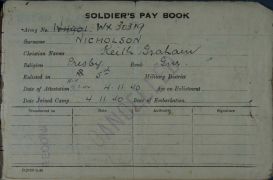 SOLDIER'S PAY BOOK
Army No. WX 36349
Surname NICHOLSON
Christian Names Keith Graham
Religion Presby. Rank Gnr.
Enlisted in 5th Military District
Date of Attestation 4.11.40 Age on Enlistment
Date Joined Camp 4.11.40 Date of Embarkation
Transferred to Date Authority Signature
CANCELLED